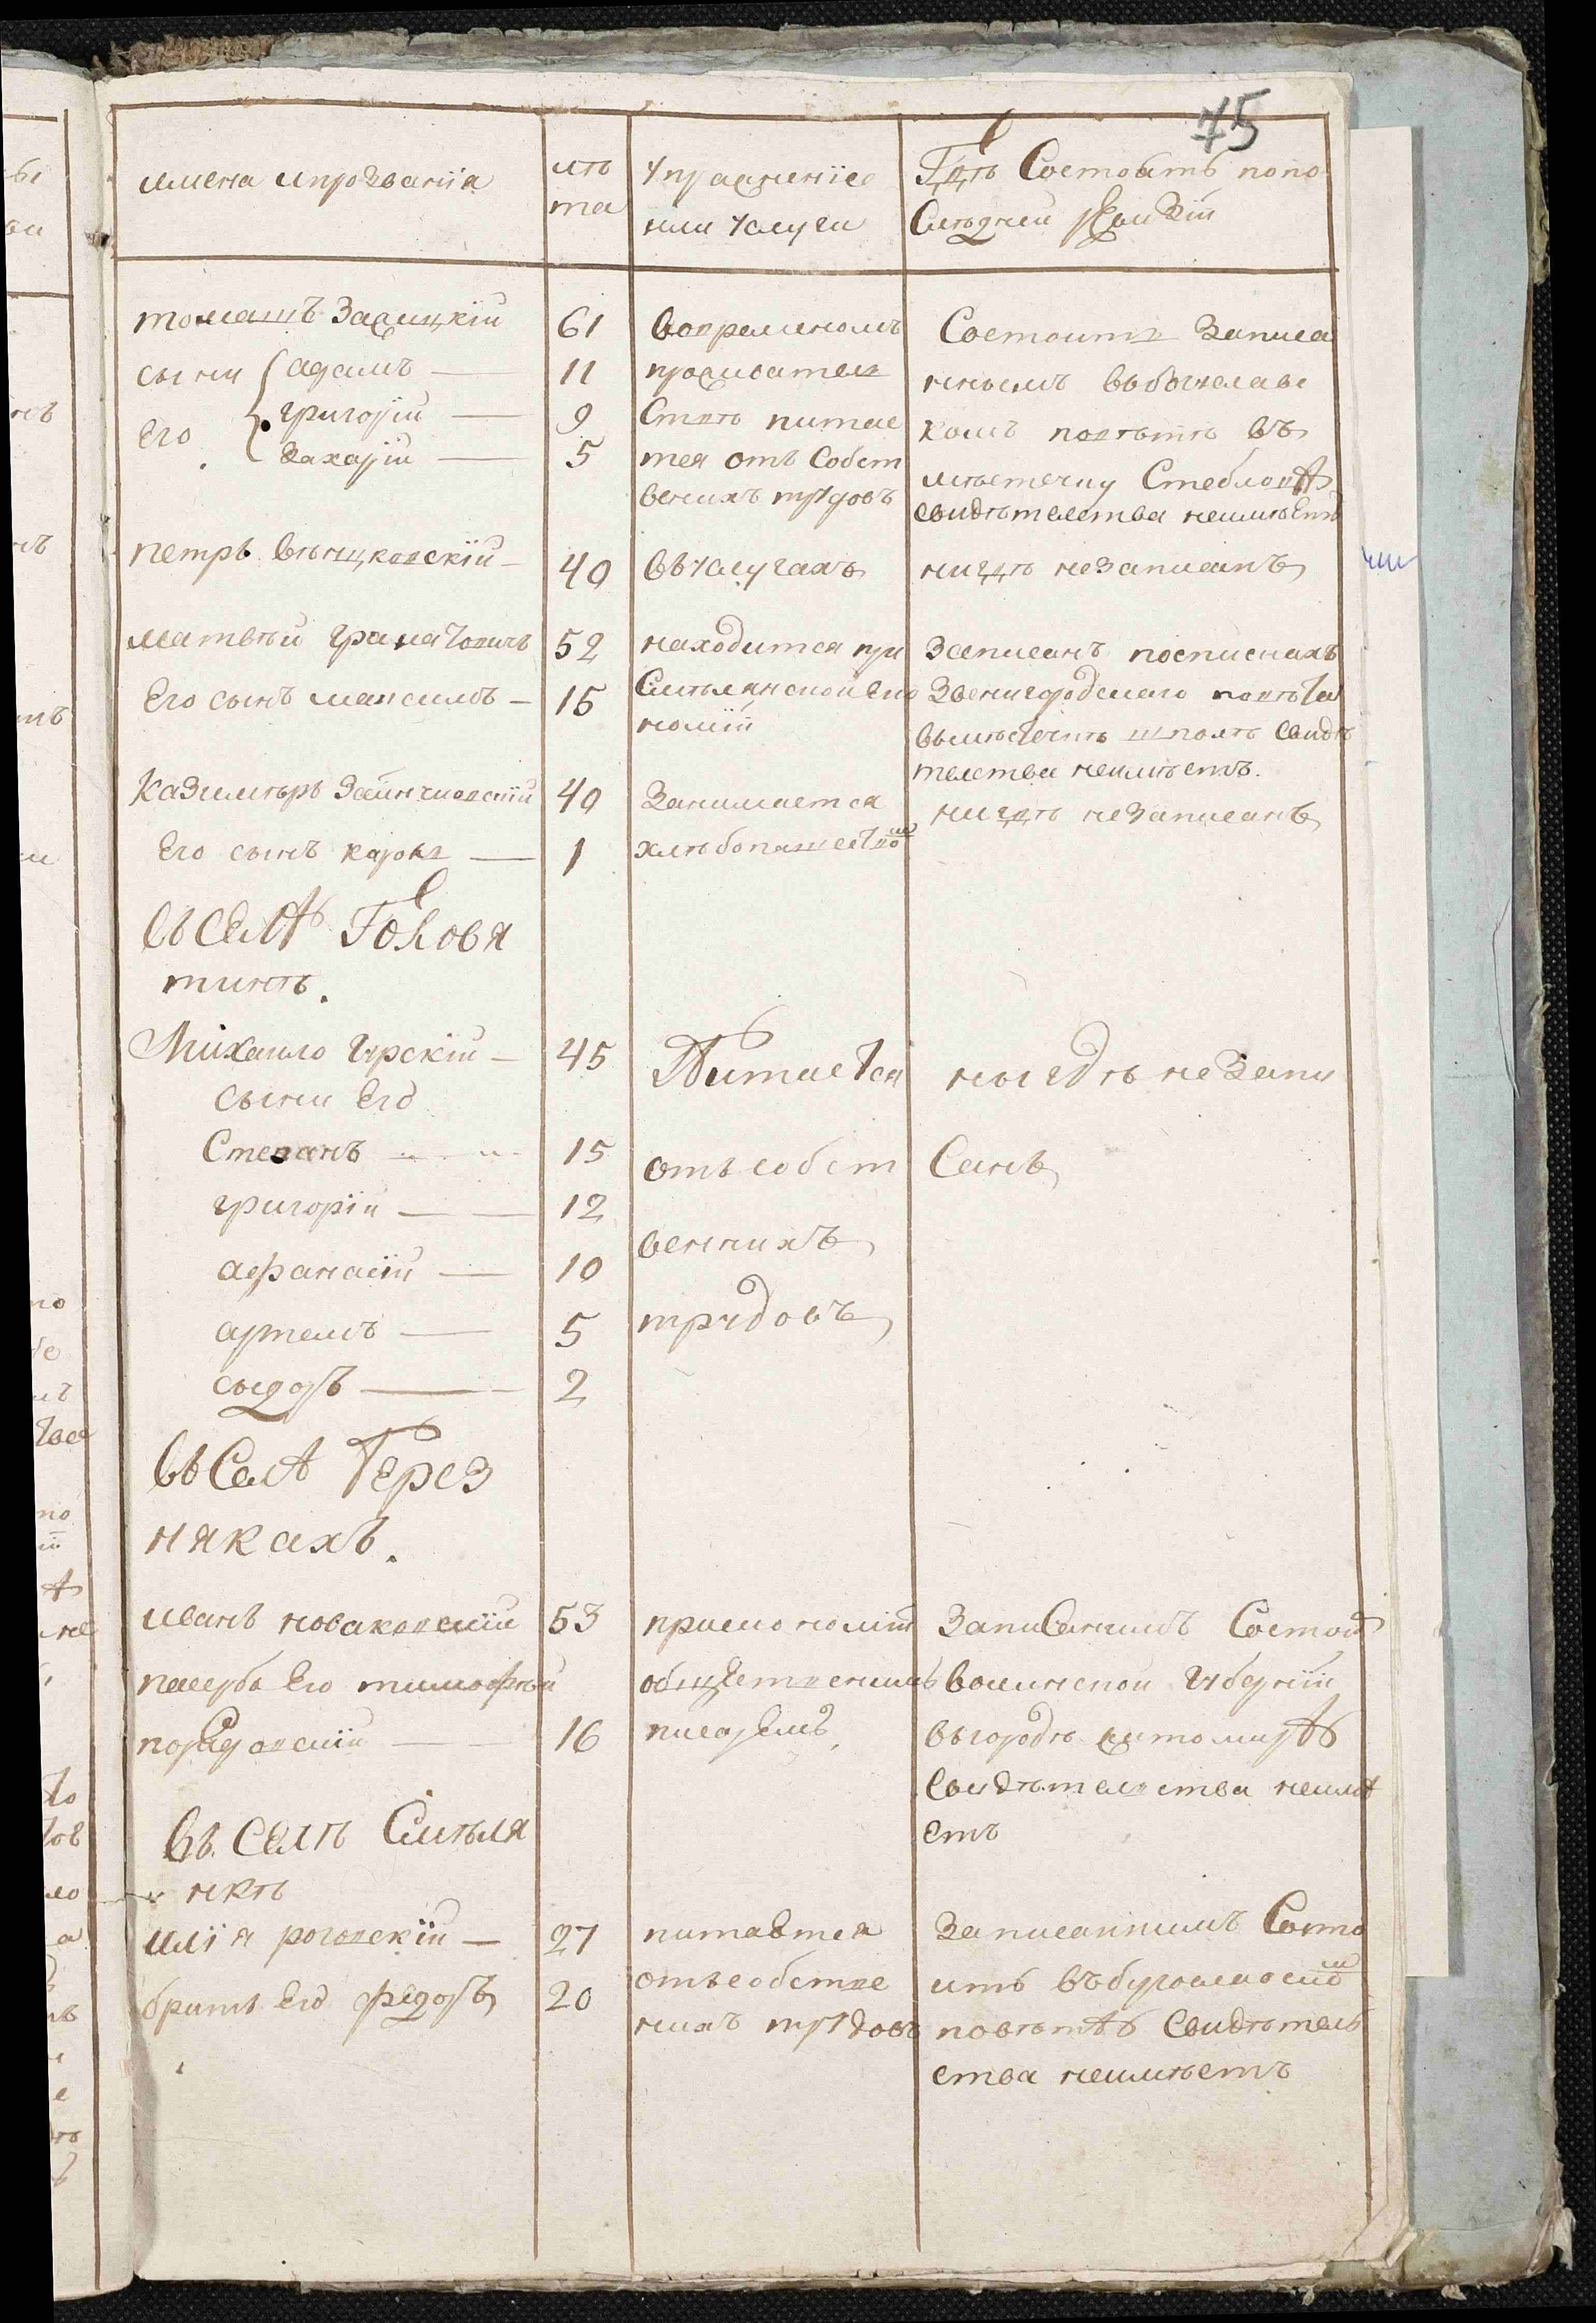 75
имена ипрозванїя
лѣ
та
Упражненїе
или Услуги
Гдѣ Состоятъ попо
Слѣдней ревизїй
томашъ Залицкїй
61
вовременомъ
Состоитъ Записа
сыни
адамъ
11
проживател
ннымъ въбогуслав
Его
григорїй
9
Ствѣ питае
комъ повѣтѣ въ
Захарїй
5
тся отъ Собст
мѣстечку Стебловѣ
венихъ трудовъ
свидѣтелства неимѣетъ
петръ Вѣнцковскїй
40
въУслугахъ
нигдѣ незаписанъ
матвѣй Гранатовичъ
52
находится при
Записанъ посписнахъ
Его сынъ максимъ
15
Смѣлянской Еко
Звенигородскаго повѣта
номїй
вмѣстечкѣ шполѣ свидѣ
телства неимѣетъ.
Казимѣръ Заїнчковскїй
40
Занимается
нигдѣ незаписанъ
Его сынъ кароль
1
хлѣбопашество
въ селѣ Голова
тинѣ.
Михаило Гурскїй
45
Питается
нигдѣ незапи
сыни Его
Степанъ
15
отъ собст
Санъ
григорїй
12
венихъ
афанасїй
10
трудовъ
артемъ
5
сыдоръ
2
въ Селѣ Терез
някахъ.
иванъ новаковскїй
53
приекономїй
Записаннымъ Состои
пасербъ Его тимофѣй
общественимъ
волинской Губернїи
порадовскїй
16
писаремъ
въгородѣ житомирѣ
Свидѣтелства неимѣ
етъ
въ Селѣ Смѣля
нкѣ
илїя роговскїй
27
питается
Записаннимъ Состо
братъ Его федоръ
20
отъсобстве
итъ въбугославском
нихъ трудовъ
повѣтѣ Свидѣтель
ства неимѣетъ